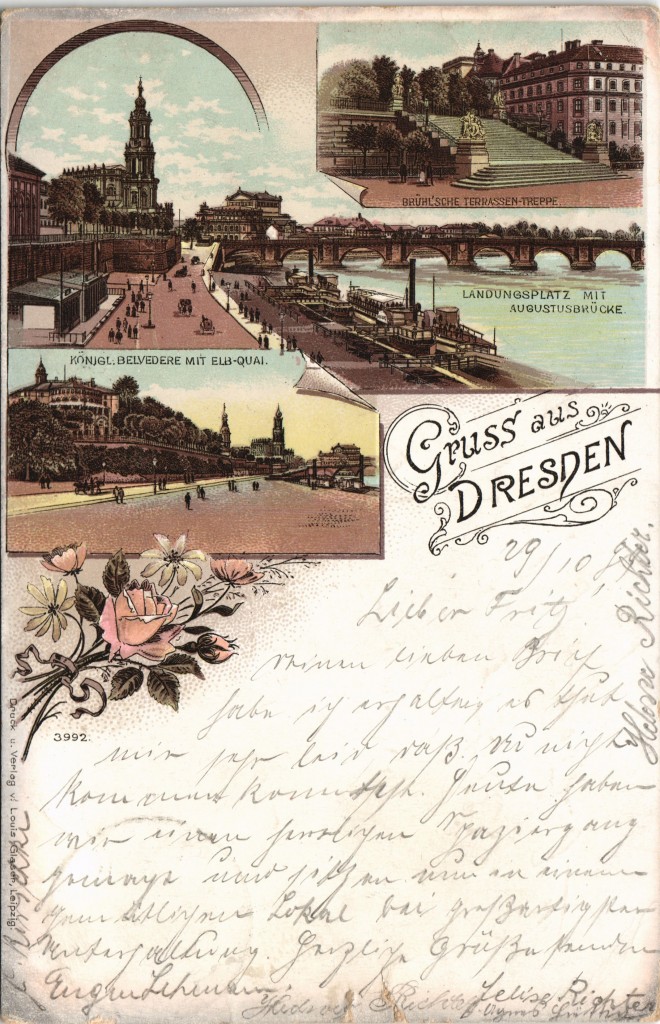 BRÜHL'SCHE TERRASSEN-TREPPE
LANDUNGSPLATZ MIT
AUGUSTUSBRÜCKE.
KÖNIGL. BELVEDERE MIT ELB-QUAI.
Gruss aus
DRESDEN
29/10
Lieber Fritz!
deinen lieben Brief
habe ich erhalten es thut
mir sehr leid daß du nicht
kommen konntest. Heute haben
wir einen herrlichen Spaziergang
gemacht und sitzen nun in einem
gemütlichen Lokal bei großartigster
Unterhaltung. Herzliche Grüße senden
Eugen Lehmann
Richter
Felix Richter
Agnes
Richter.
3992.
Druck u. Verlag v. Louis Glaser, Leipzig.